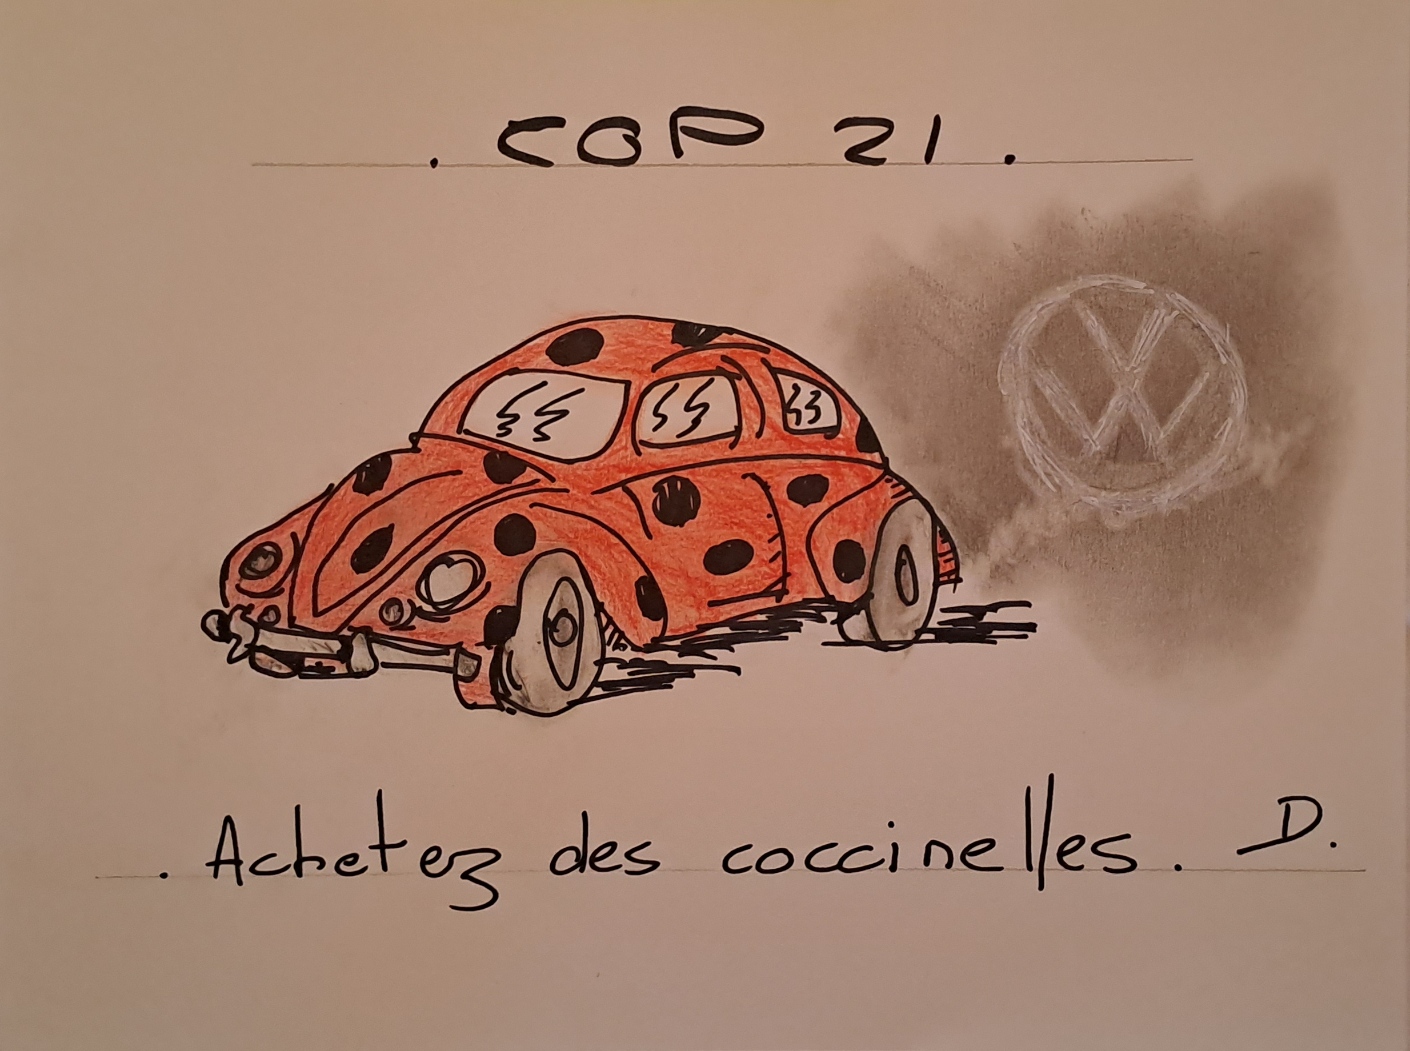 . COP 21 .
VW
. Achetez des coccinelles . D.